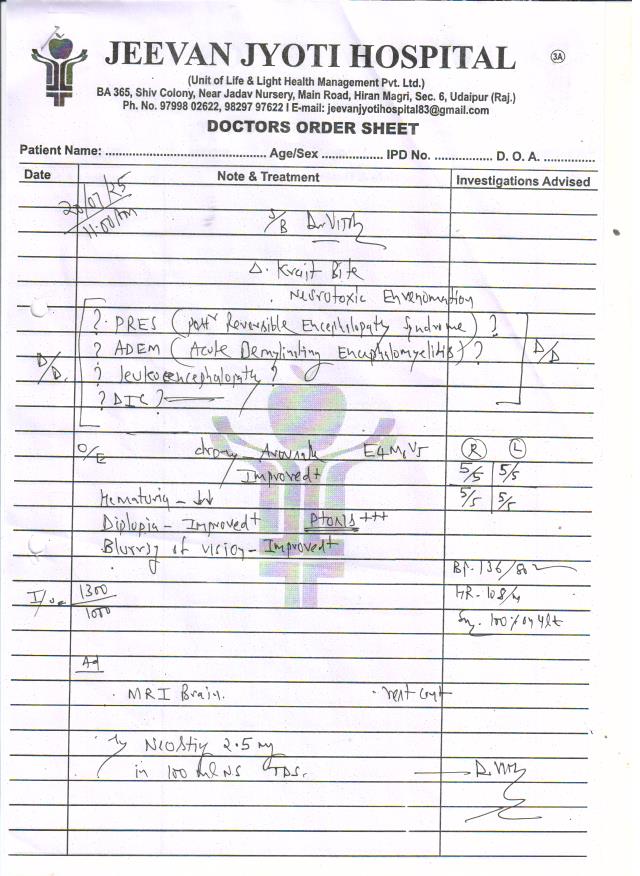 JEEVAN JYOTI HOSPITAL
3A
(Unit of Life & Light Health Management Pvt. Ltd.)
BA 365, Shiv Colony, Near Jadav Nursery, Main Road, Hiran Magri, Sec. 6, Udaipur (Raj.)
Ph. No. 97998 02622, 98297 97622 I E-mail: jeevanjyotihospital83@gmail.com
DOCTORS ORDER SHEET
Patient Name: ............................................ Age/Sex ................. IPD No. ................ D. O. A. ...............
Date Note & Treatment Investigations Advised
20/07/25
11:00AM
S/B Dr.
Δ. Krait Bite
. Neurotoxic Envenomation
? PRES (postr Reversible Encephalopaty Syndrome) ?
D/D. ? ADEM (Acute Demylinating Encephalomyelitis) ? D/D
? leukoencephalopaty ?
? DIC ?
O/E drowsy - Arousable E4M6V5 R L
Improved+ 5/5 5/5
Hematuria - ↓↓ 5/5 5/5
Diplopia - Improved+ Ptosis +++
Blurrsy of vision - Improved+
BP. 136/80
I/ 1300/1000 HR - 108/m
100% on 4lt
Ad
. MRI Brain. . rest cont
Neostig 2.5 mg
in 100 ml NS TDS.